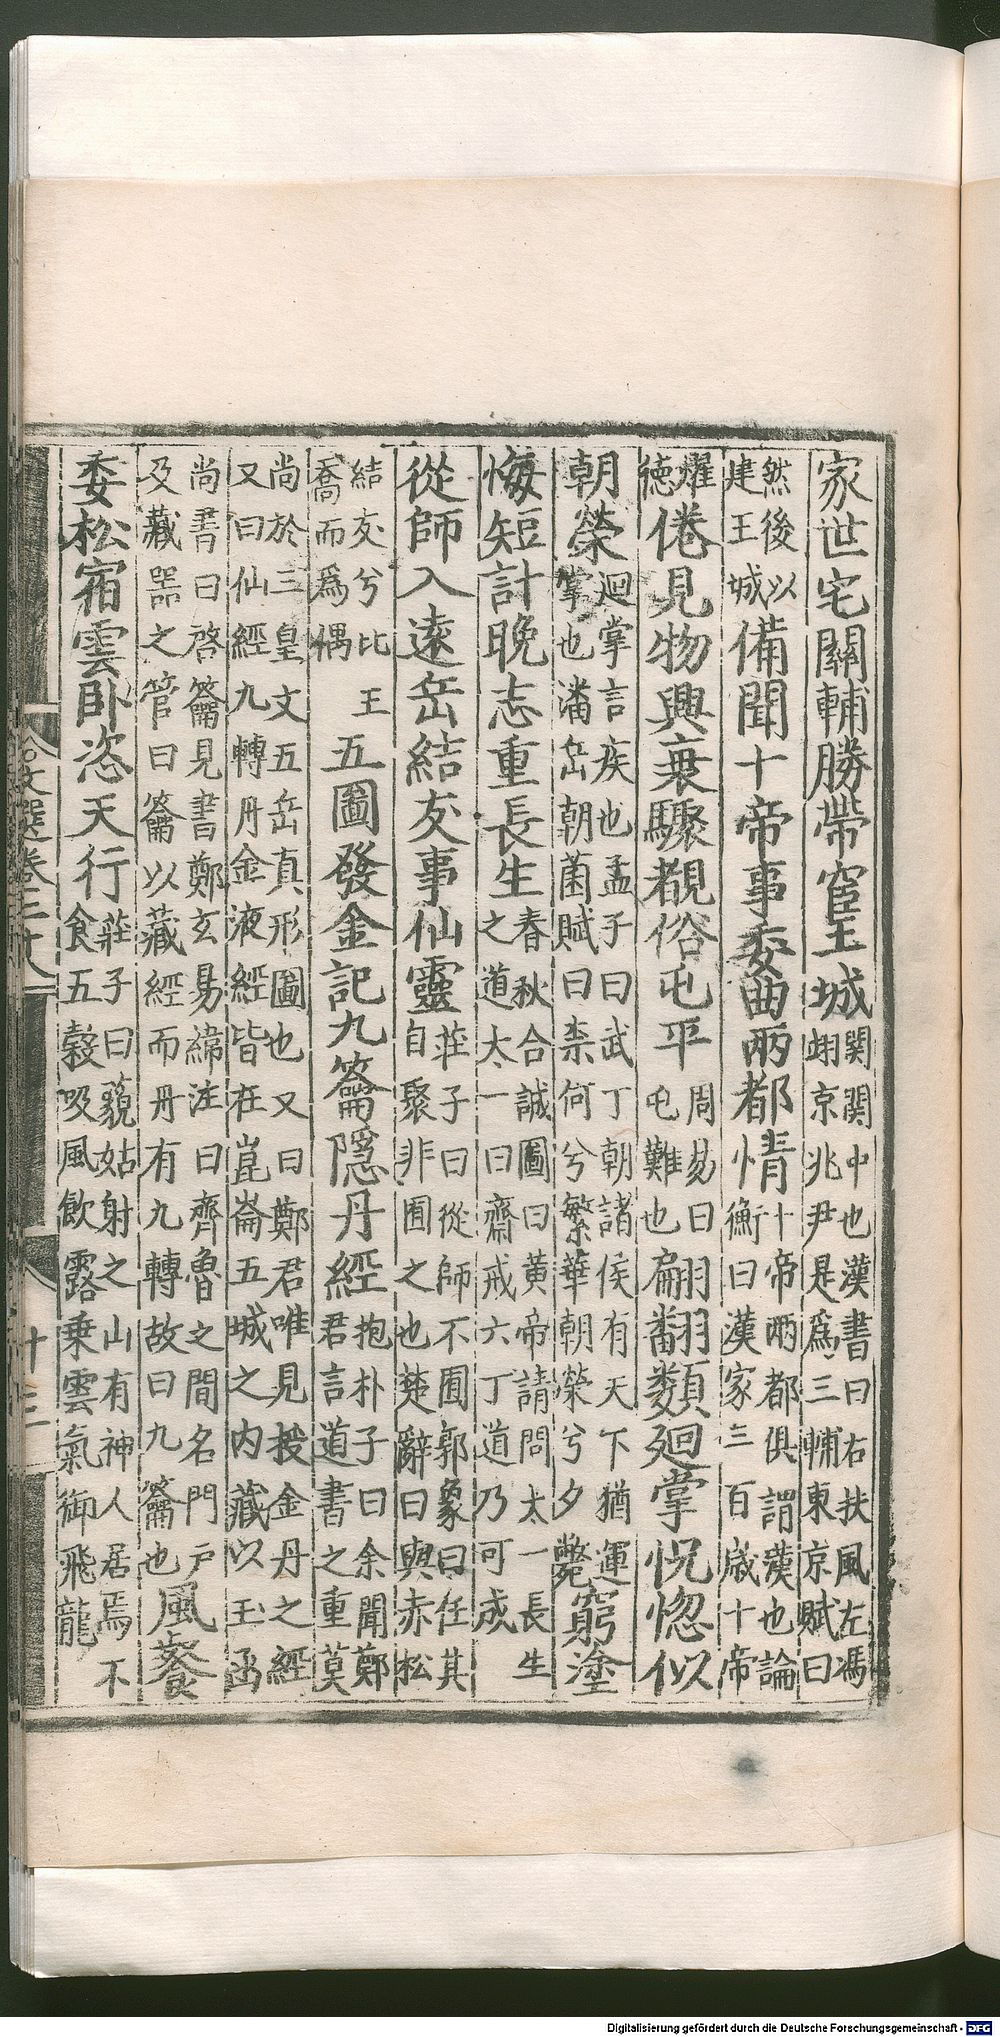 家世宅關輔勝帶宦王城関関中也漢書曰右扶風左馮
翊京兆尹是爲三輔東京賦曰
然後以
建王城備聞十帝事委曲兩都情十帝兩都俱謂漢也論
衡曰漢家三百歳十帝
耀
德倦見物興衰驟覩俗屯平周易曰
屯難也翩翻類廻掌怳惚似
朝榮廻掌言疾也孟子曰武丁朝諸侯有天下猶運
掌也潘岳朝菌賦曰柰何兮繁華朝榮兮夕斃窮塗
悔短計晚志重長生春秋合誠圖曰黄帝請問太一長生
之道太一曰齋戒六丁道乃可成
從師入遠岳結友事仙靈莊子曰從師不囿郭象曰任其
自聚非囿之也楚辭曰與赤松
結友兮比王
喬而爲偶五圖發金記九籥隱丹經抱朴子曰余聞鄭
君言道書之重莫
尚於三皇文五岳真形圖也又曰鄭君唯見授金丹之經
又曰仙經九轉丹金液經皆在崑崙五城之内藏以玉函
尚書曰啓籥見書鄭玄易緯注曰齊魯之間名門戸
及藏器之管曰籥以藏經而丹有九轉故曰九籥也風餐
委松宿雲卧恣天行莊子曰藐姑射之山有神人居焉不
食五穀吸風飲露乗雲氣御飛龍
文選卷二十八
十三
Digitalisierung gefördert durch die Deutsche Forschungsgemeinschaft - DFG